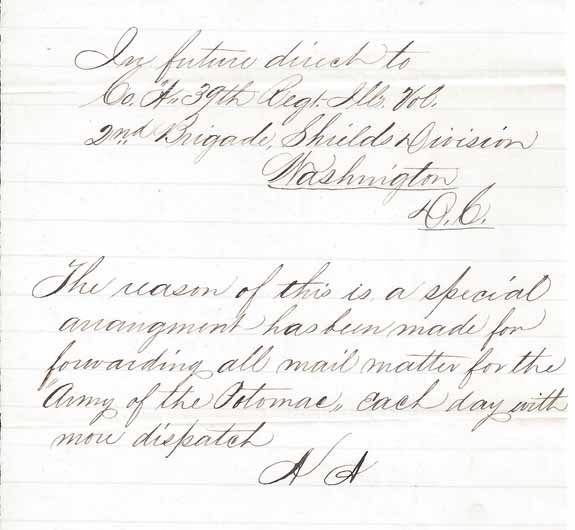 In future direct to
Co. "A" 39th Regt. Ills. Vol.
2nd Brigade, Shields Division
Washington
D.C.
The reason of this is a special
arrangment has been made for
forwarding all mail matter for the
"Army of the Potomac" each day with
more dispatch
A A